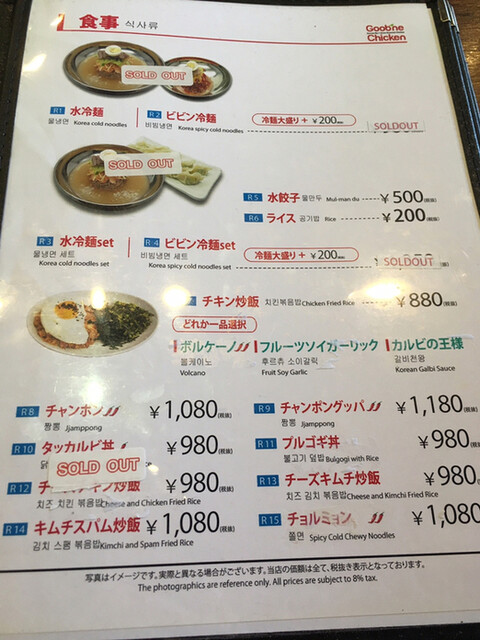 食事 식사류
Goobne
Chicken
SOLD OUT
R1 水冷麺
물냉면 Korea cold noodles
R2 ビビン冷麺
비빔냉면 Korea spicy cold noodles
冷麺大盛り + ¥200(税抜)
SOLDOUT
SOLD OUT
R5 水餃子 물만두 Mul-man du ¥500(税抜)
R6 ライス 공기밥 Rice ¥200(税抜)
R3 水冷麺set
물냉면 세트
Korea cold noodles set
R4 ビビン冷麺set
비빔냉면 세트
Korea spicy cold noodles set
冷麺大盛り + ¥200(税抜)
SOLDOUT
チキン炒飯 치킨볶음밥 Chicken Fried Rice ¥880(税抜)
どれか一品選択
ボルケーノ
볼케이노
Volcano
フルーツソイガーリック
후르츄 소이갈릭
Fruit Soy Garlic
カルビの王様
갈비천왕
Korean Galbi Sauce
R8 チャンポン ¥1,080(税抜)
짬뽕 Jjamppong
R9 チャンポングッパ ¥1,180(税抜)
짬뽕 Jjamppong
R10 タッカルビ丼 ¥980(税抜)
R11 プルゴギ丼 ¥980(税抜)
불고기 덮밥 Bulgogi with Rice
SOLD OUT
R12 チーズチキン炒飯 ¥980(税抜)
치즈 치킨 볶음밥 Cheese and Chicken Fried Rice
R13 チーズキムチ炒飯 ¥980(税抜)
치즈 김치 볶음밥 Cheese and Kimchi Fried Rice
R14 キムチスパム炒飯 ¥1,080(税抜)
김치 스팸 볶음밥 Kimchi and Spam Fried Rice
R15 チョルミョン ¥1,080
쫄면 Spicy Cold Chewy Noodles
写真はイメージです。実際と異なる場合がございます。当店の価額は全て、税抜き表示となっております。
The photographics are reference only. All prices are subject to 8% tax.